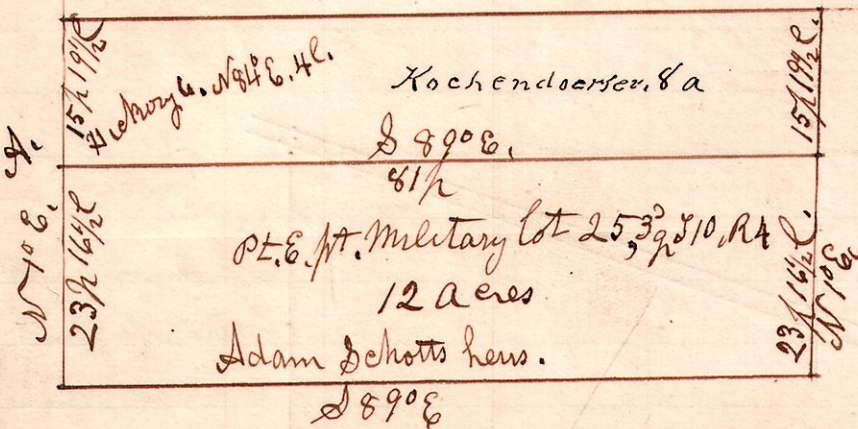 15p 19½ l
Hickory 6. N84°E. 4l.
Kochendoerfer. 8a
15p 19½ l.
S 89° E.
81p
N 1° E.
23p 16½ l
Pt. E. pt. Military lot 25, 3d q T10, R4
12 acres
Adam Schotts heirs.
23p 16½ l.
N 1° E.
S 89° E